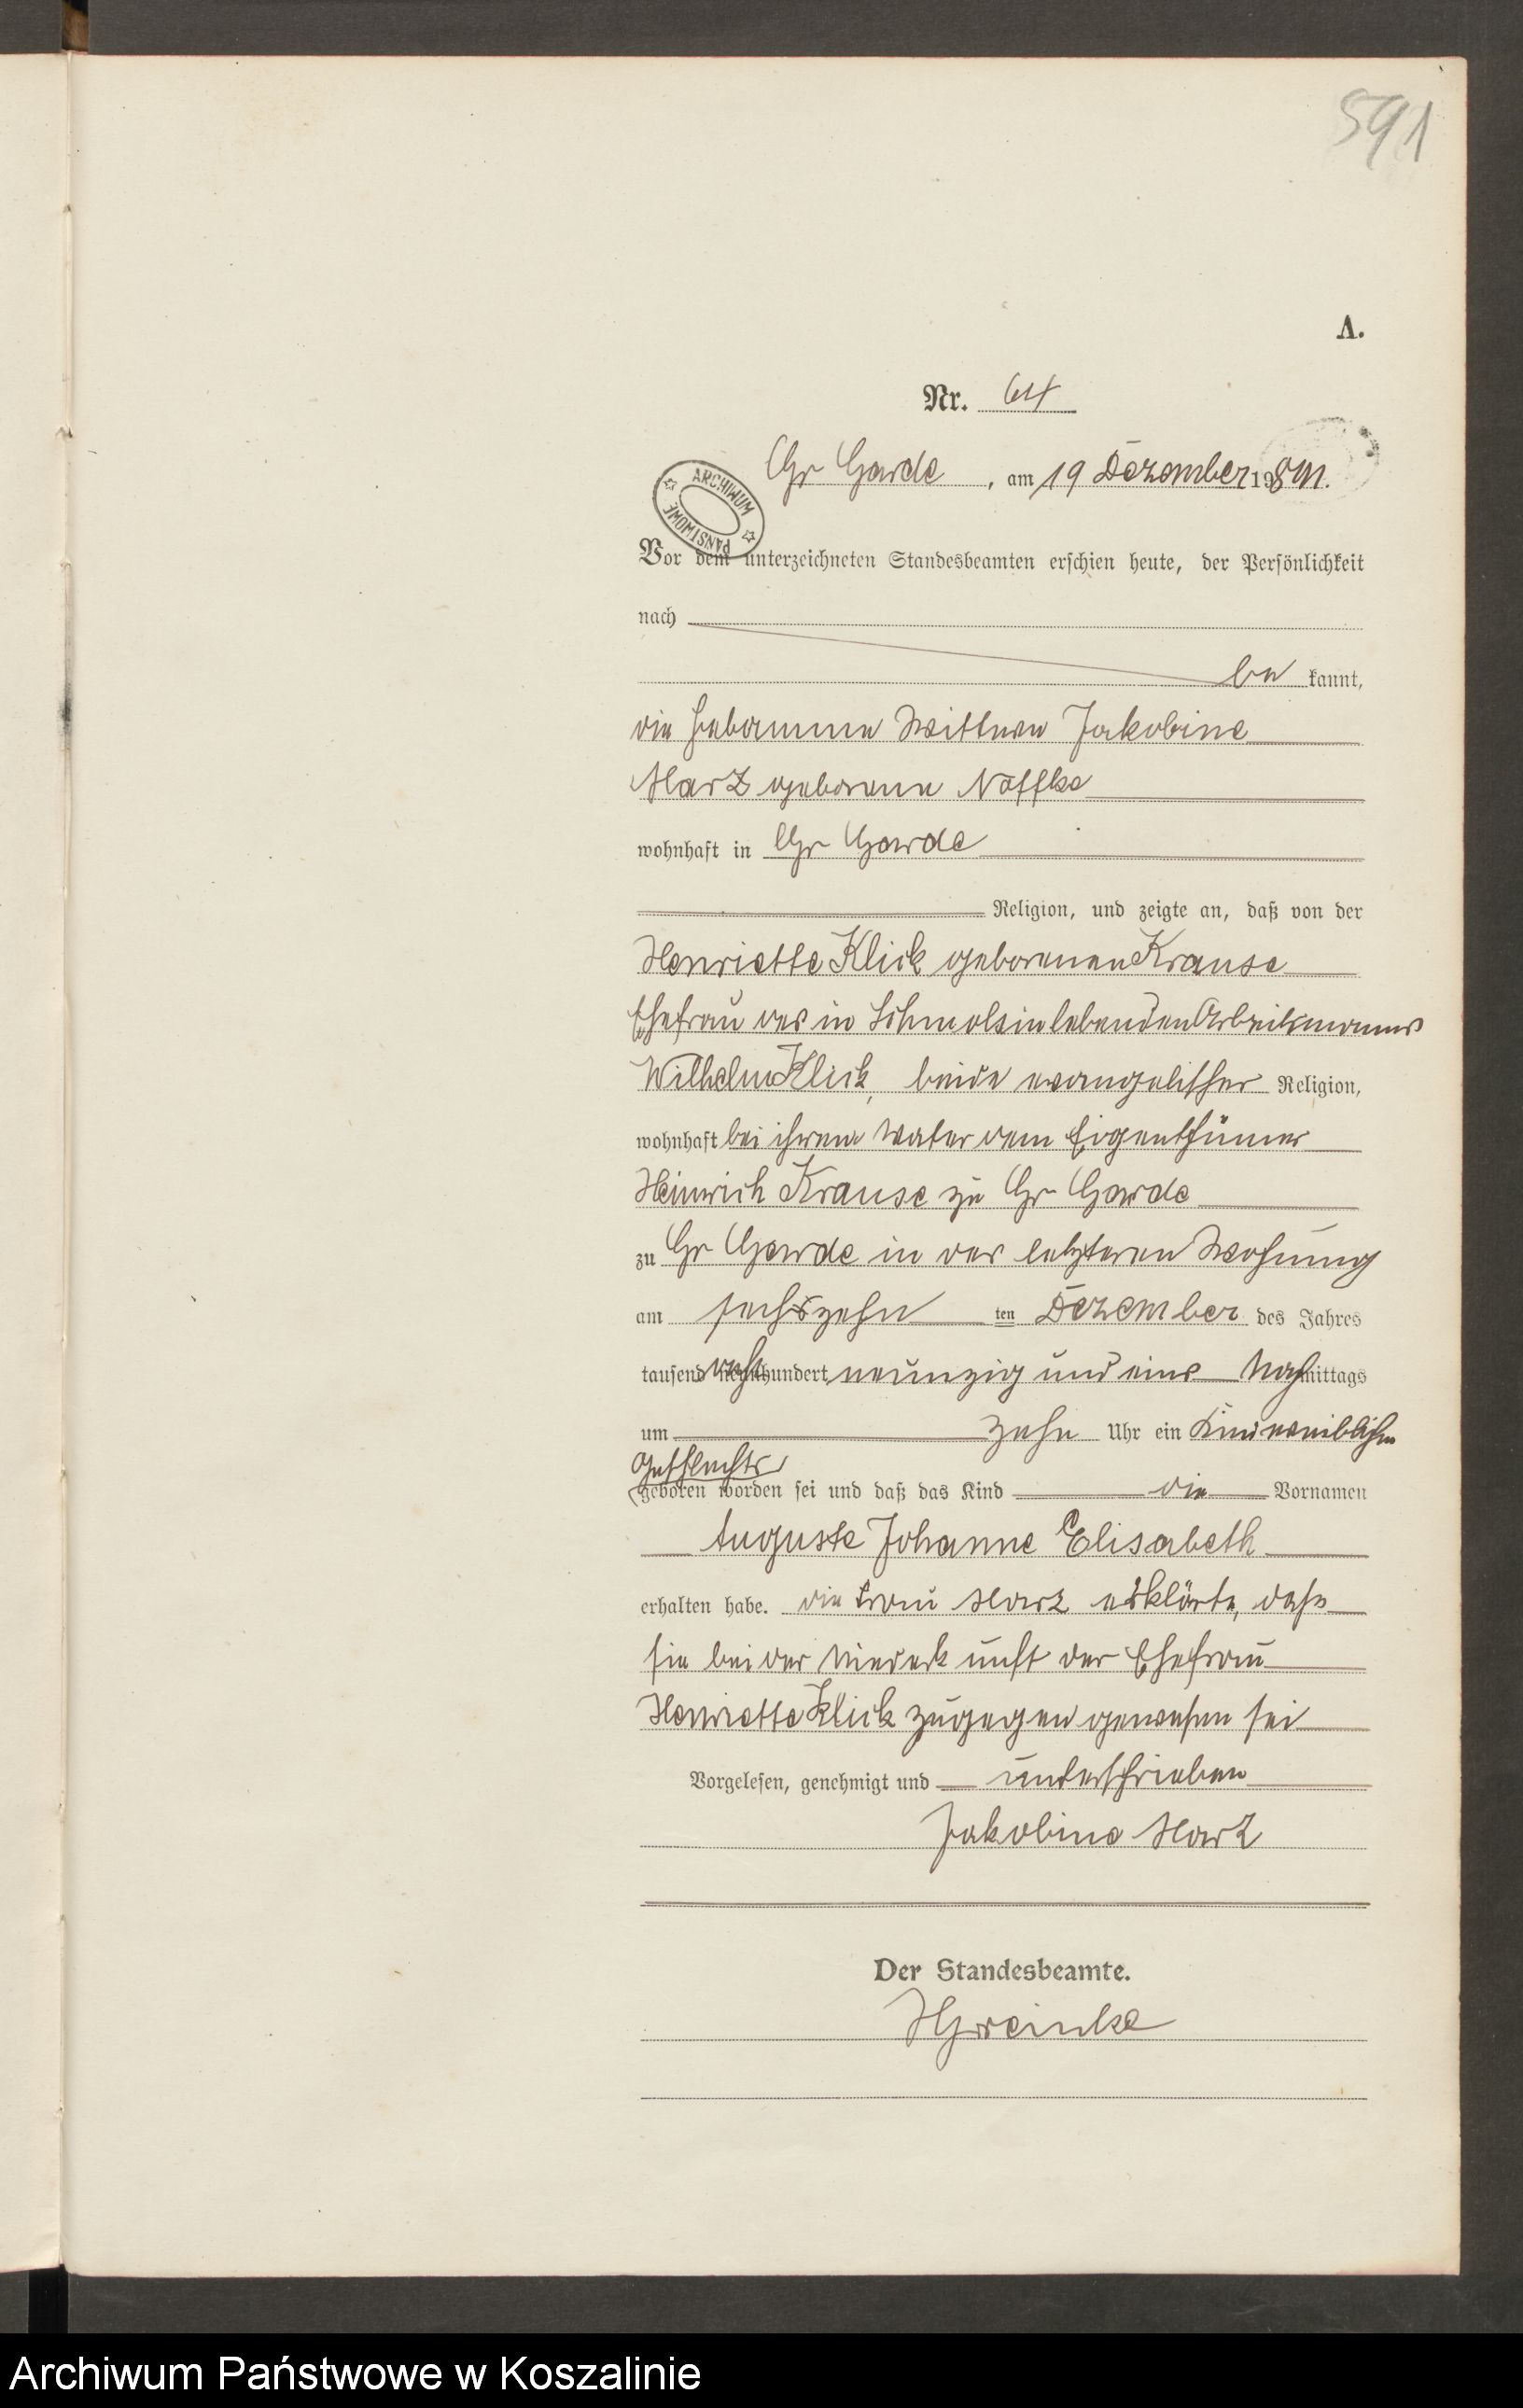 591
A.
Nr. 64
Gr Garde, am 19 Dezember 1891.
ARCHIWUM PAŃSTWOWE
Vor dem unterzeichneten Standesbeamten erschien heute, der Persönlichkeit
nach
be kannt,
die Hebamme Wittwe Jakobine
Harz geborene Noffke
wohnhaft in Gr Garde
Religion, und zeigte an, daß von der
Henriette Klick geborenen Krause
Ehefrau des in Schmolsin lebenden Arbeitsmannes
Wilhelm Klick, beide evangelischer Religion,
wohnhaft bei ihrem Vater dem Eigenthümer
Heinrich Krause zu Gr Garde
zu Gr Garde in der letzteren Wohnung
am sechszehn ten Dezember des Jahres
tausend acht hundert neunzig und eins Nachmittags
um zehn Uhr ein Kind weiblichen
Geschlechts
geboren worden sei und daß das Kind die Vornamen
Auguste Johanne Elisabeth
erhalten habe. die Frau Harz erklärte, daß
sie bei der Niederkunft der Ehefrau
Henriette Klick zugegen gewesen sei
Vorgelesen, genehmigt und unterschrieben
Jakobine Harz
Der Standesbeamte.
Archiwum Państwowe w Koszalinie